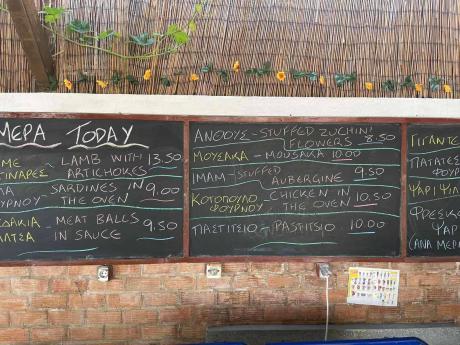 ΜΕΡΑ TODAY
ΜΕ LAMB WITH 13.50
ΓΙΝΑΡΕΣ ARTICHOKES
SARDINES IN 9.00
ΥΡΝΟΥ THE OVEN
ΔΑΚΙΑ MEAT BALLS 9.50
ΑΛΤΣΑ IN SAUCE
ΑΝΘΟΥΣ - STUFFED ZUCHIN'
FLOWERS 8.50
ΜΟΥΣΑΚΑ - MOUSAKA 10.00
ΙΜΑΜ - STUFFED 9.50
AUBERGINE
ΚΟΤΟΠΟΥΛΟ CHICKEN IN 10.50
ΦΟΥΡΝΟΥ THE OVEN
ΠΑΣΤΙΤΣΙΟ - PASTITSIO 10.00
ΓΙΓΑΝΤΕ
ΠΑΤΑΤΕΣ
ΦΟΥΡ
ΨΑΡΙ
ΦΡΕΣΚ
ΨΑΡ
(ΑΝΑ ΜΕΡΑ